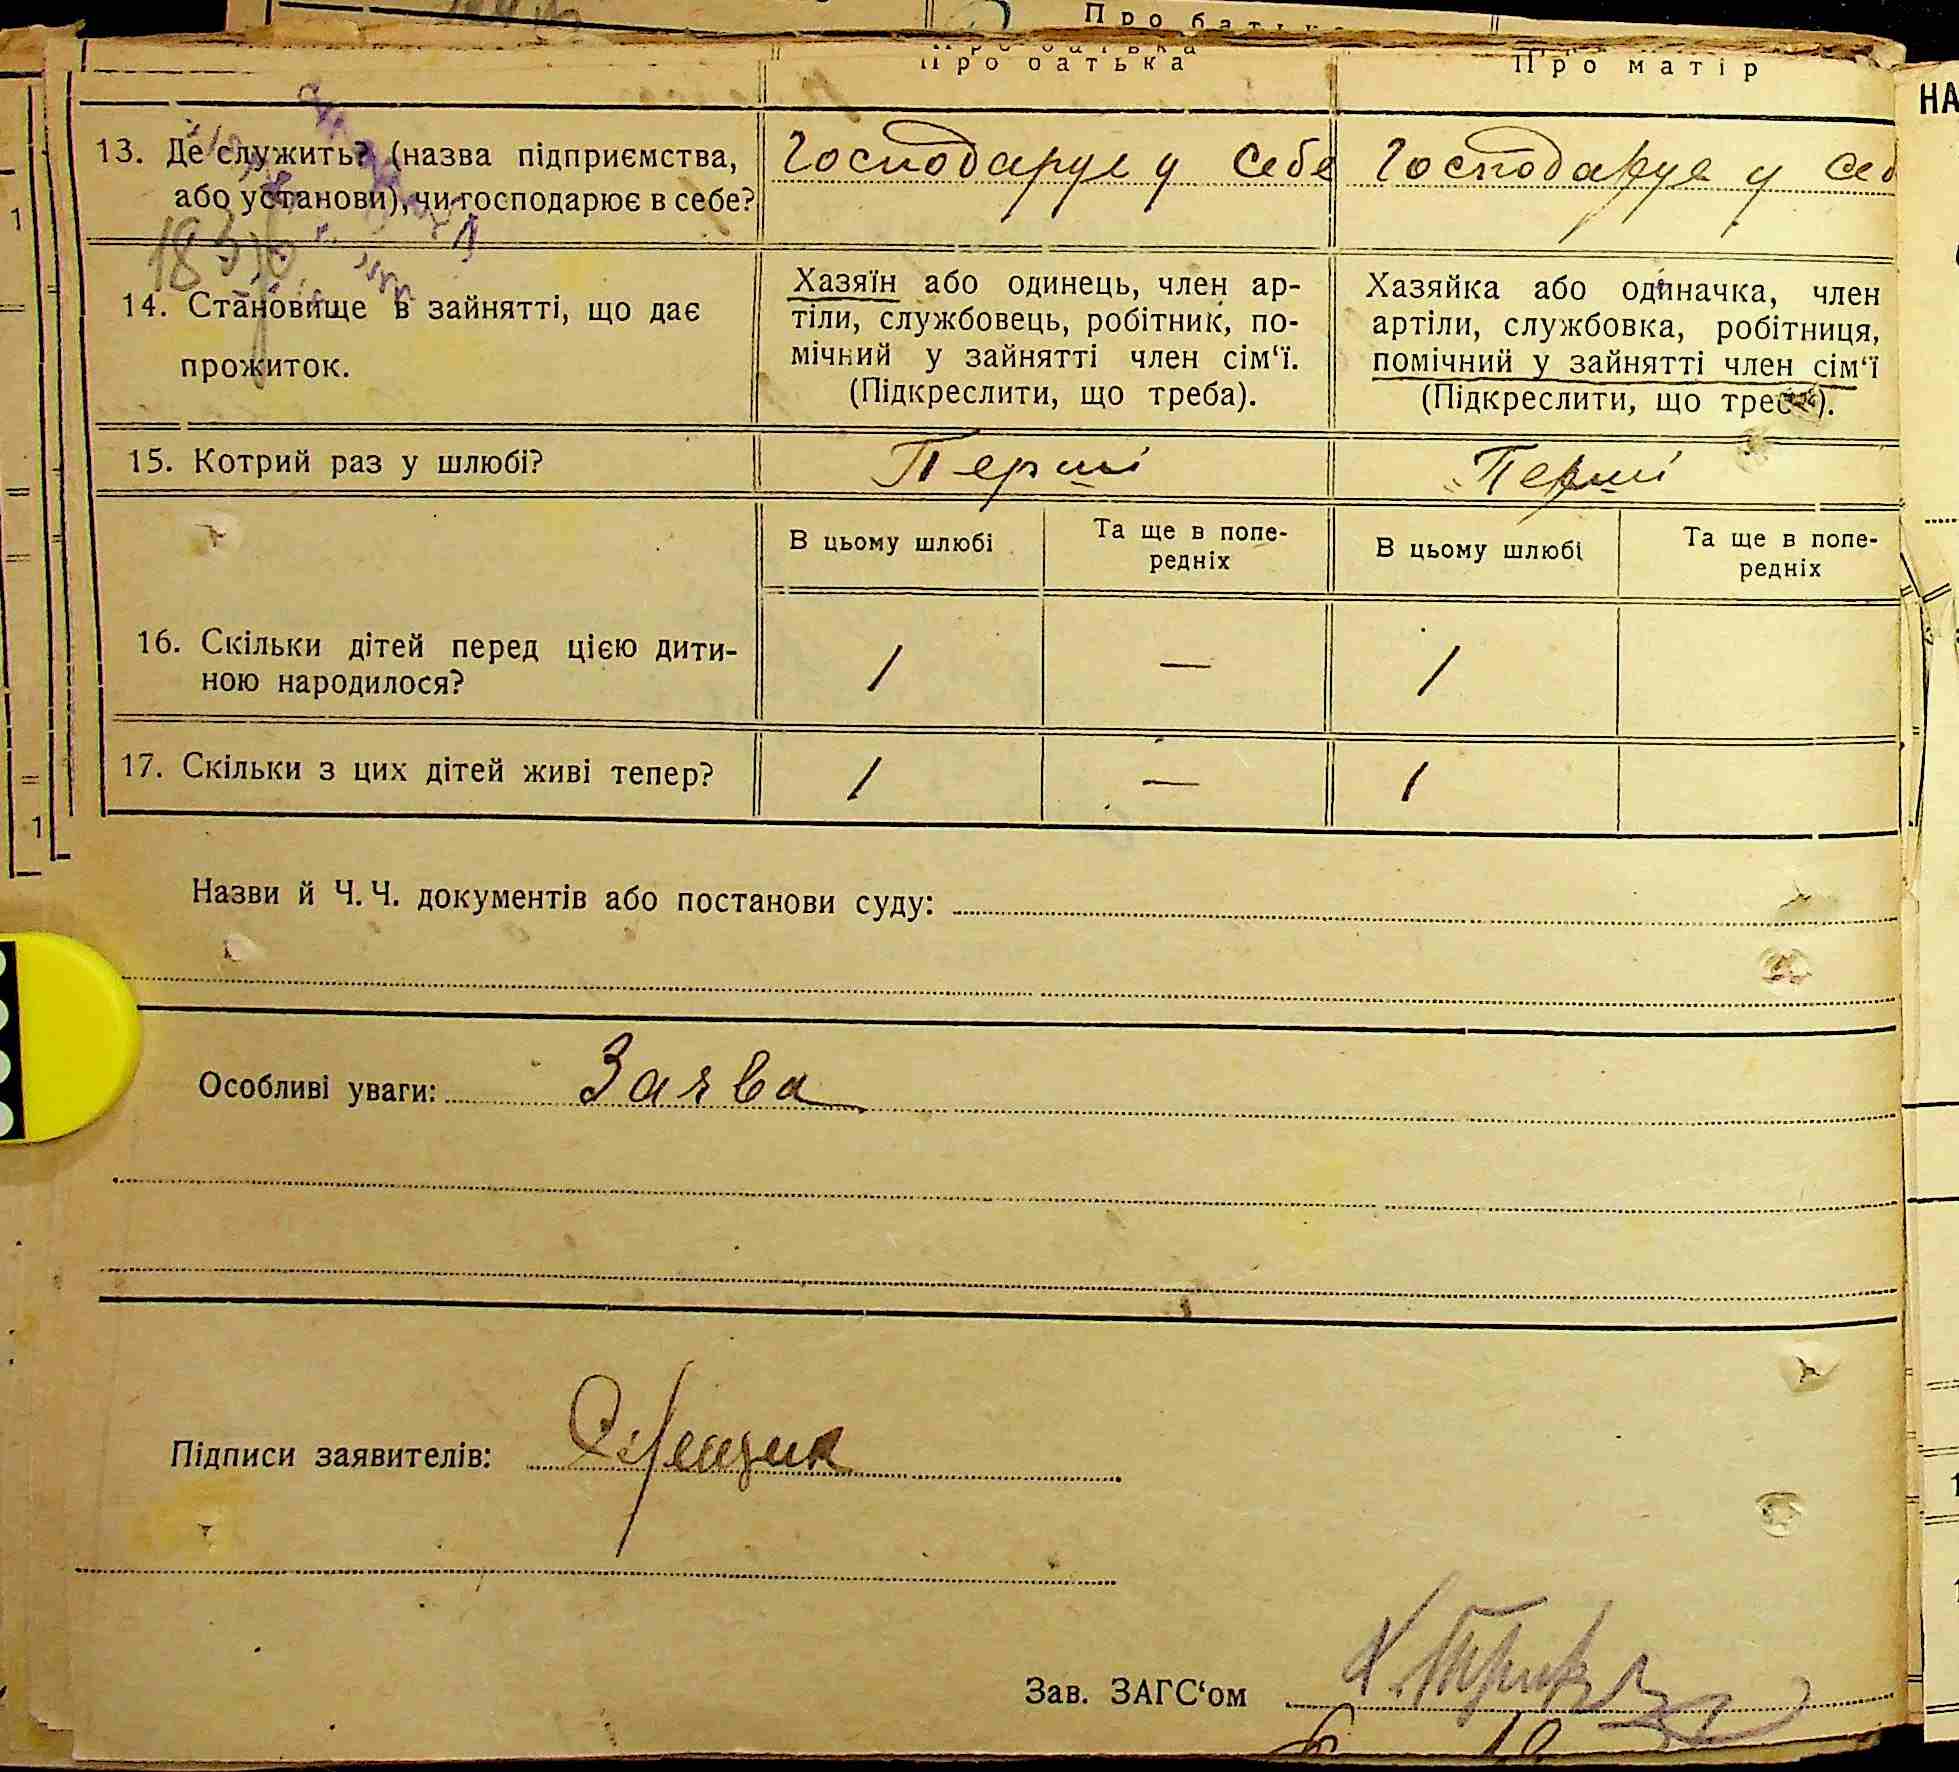 Про батька
Про батька Про матір
НА
13. Де служить? (назва підприємства, або установи), чи господарює в себе? Господарує у себе Господарує у себ
1836
14. Становище в зайнятті, що дає прожиток.
Хазяїн або одинець, член ар-
тіли, службовець, робітник, по-
мічний у зайнятті член сім‘ї.
(Підкреслити, що треба).
Хазяйка або одиначка, член
артіли, службовка, робітниця,
помічний у зайнятті член сім‘ї
(Підкреслити, що треба).
15. Котрий раз у шлюбі? Перші Перші
В цьому шлюбі Та ще в попе-
редніх
В цьому шлюбі Та ще в попе-
редніх
16. Скільки дітей перед цією дити-
ною народилося? 1 — 1
17. Скільки з цих дітей живі тепер? 1 — 1
Назви й Ч. Ч. документів або постанови суду:
Особливі уваги: Заява
Підписи заявителів:
Зав. ЗАГС‘ом